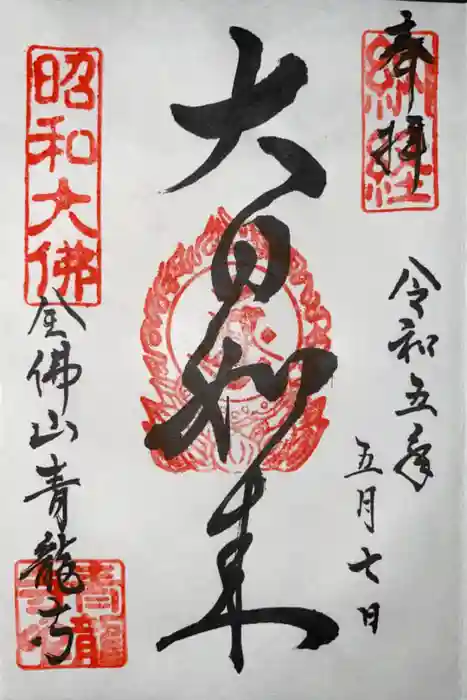 奉拝
令和五年
五月七日
大日如来
昭和大佛
全佛山青龍寺